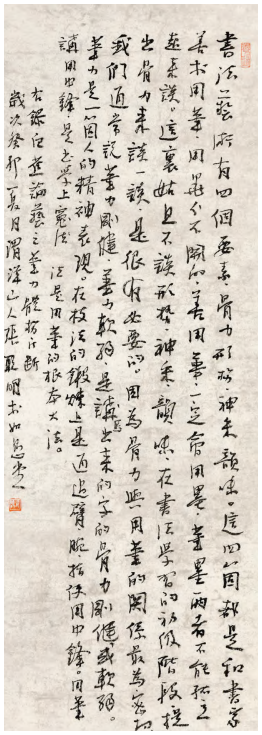 書法藝術有四個要素骨力形勢神采韻味這四個都是和書家
善於用筆用墨分不開的善用筆一定會用墨筆墨兩者不能孤立
起來談這裏姑且不談形勢神采韻味在書法學習的初級階段提
出骨力來談一談是很有必要的因為骨力與用筆的關係最為密切
我們通常說筆力剛健筆力軟弱是講寫出來的字的骨力剛健或軟弱。
筆力是一個人的精神表現。在技法的鍛煉上是通過臂腕指使用中鋒。用筆
講用中鋒是書學上 法 法是用筆的根本大法。
右錄 論藝之筆力 片斷
歲次癸卯夏月渭濱山人張 明書於